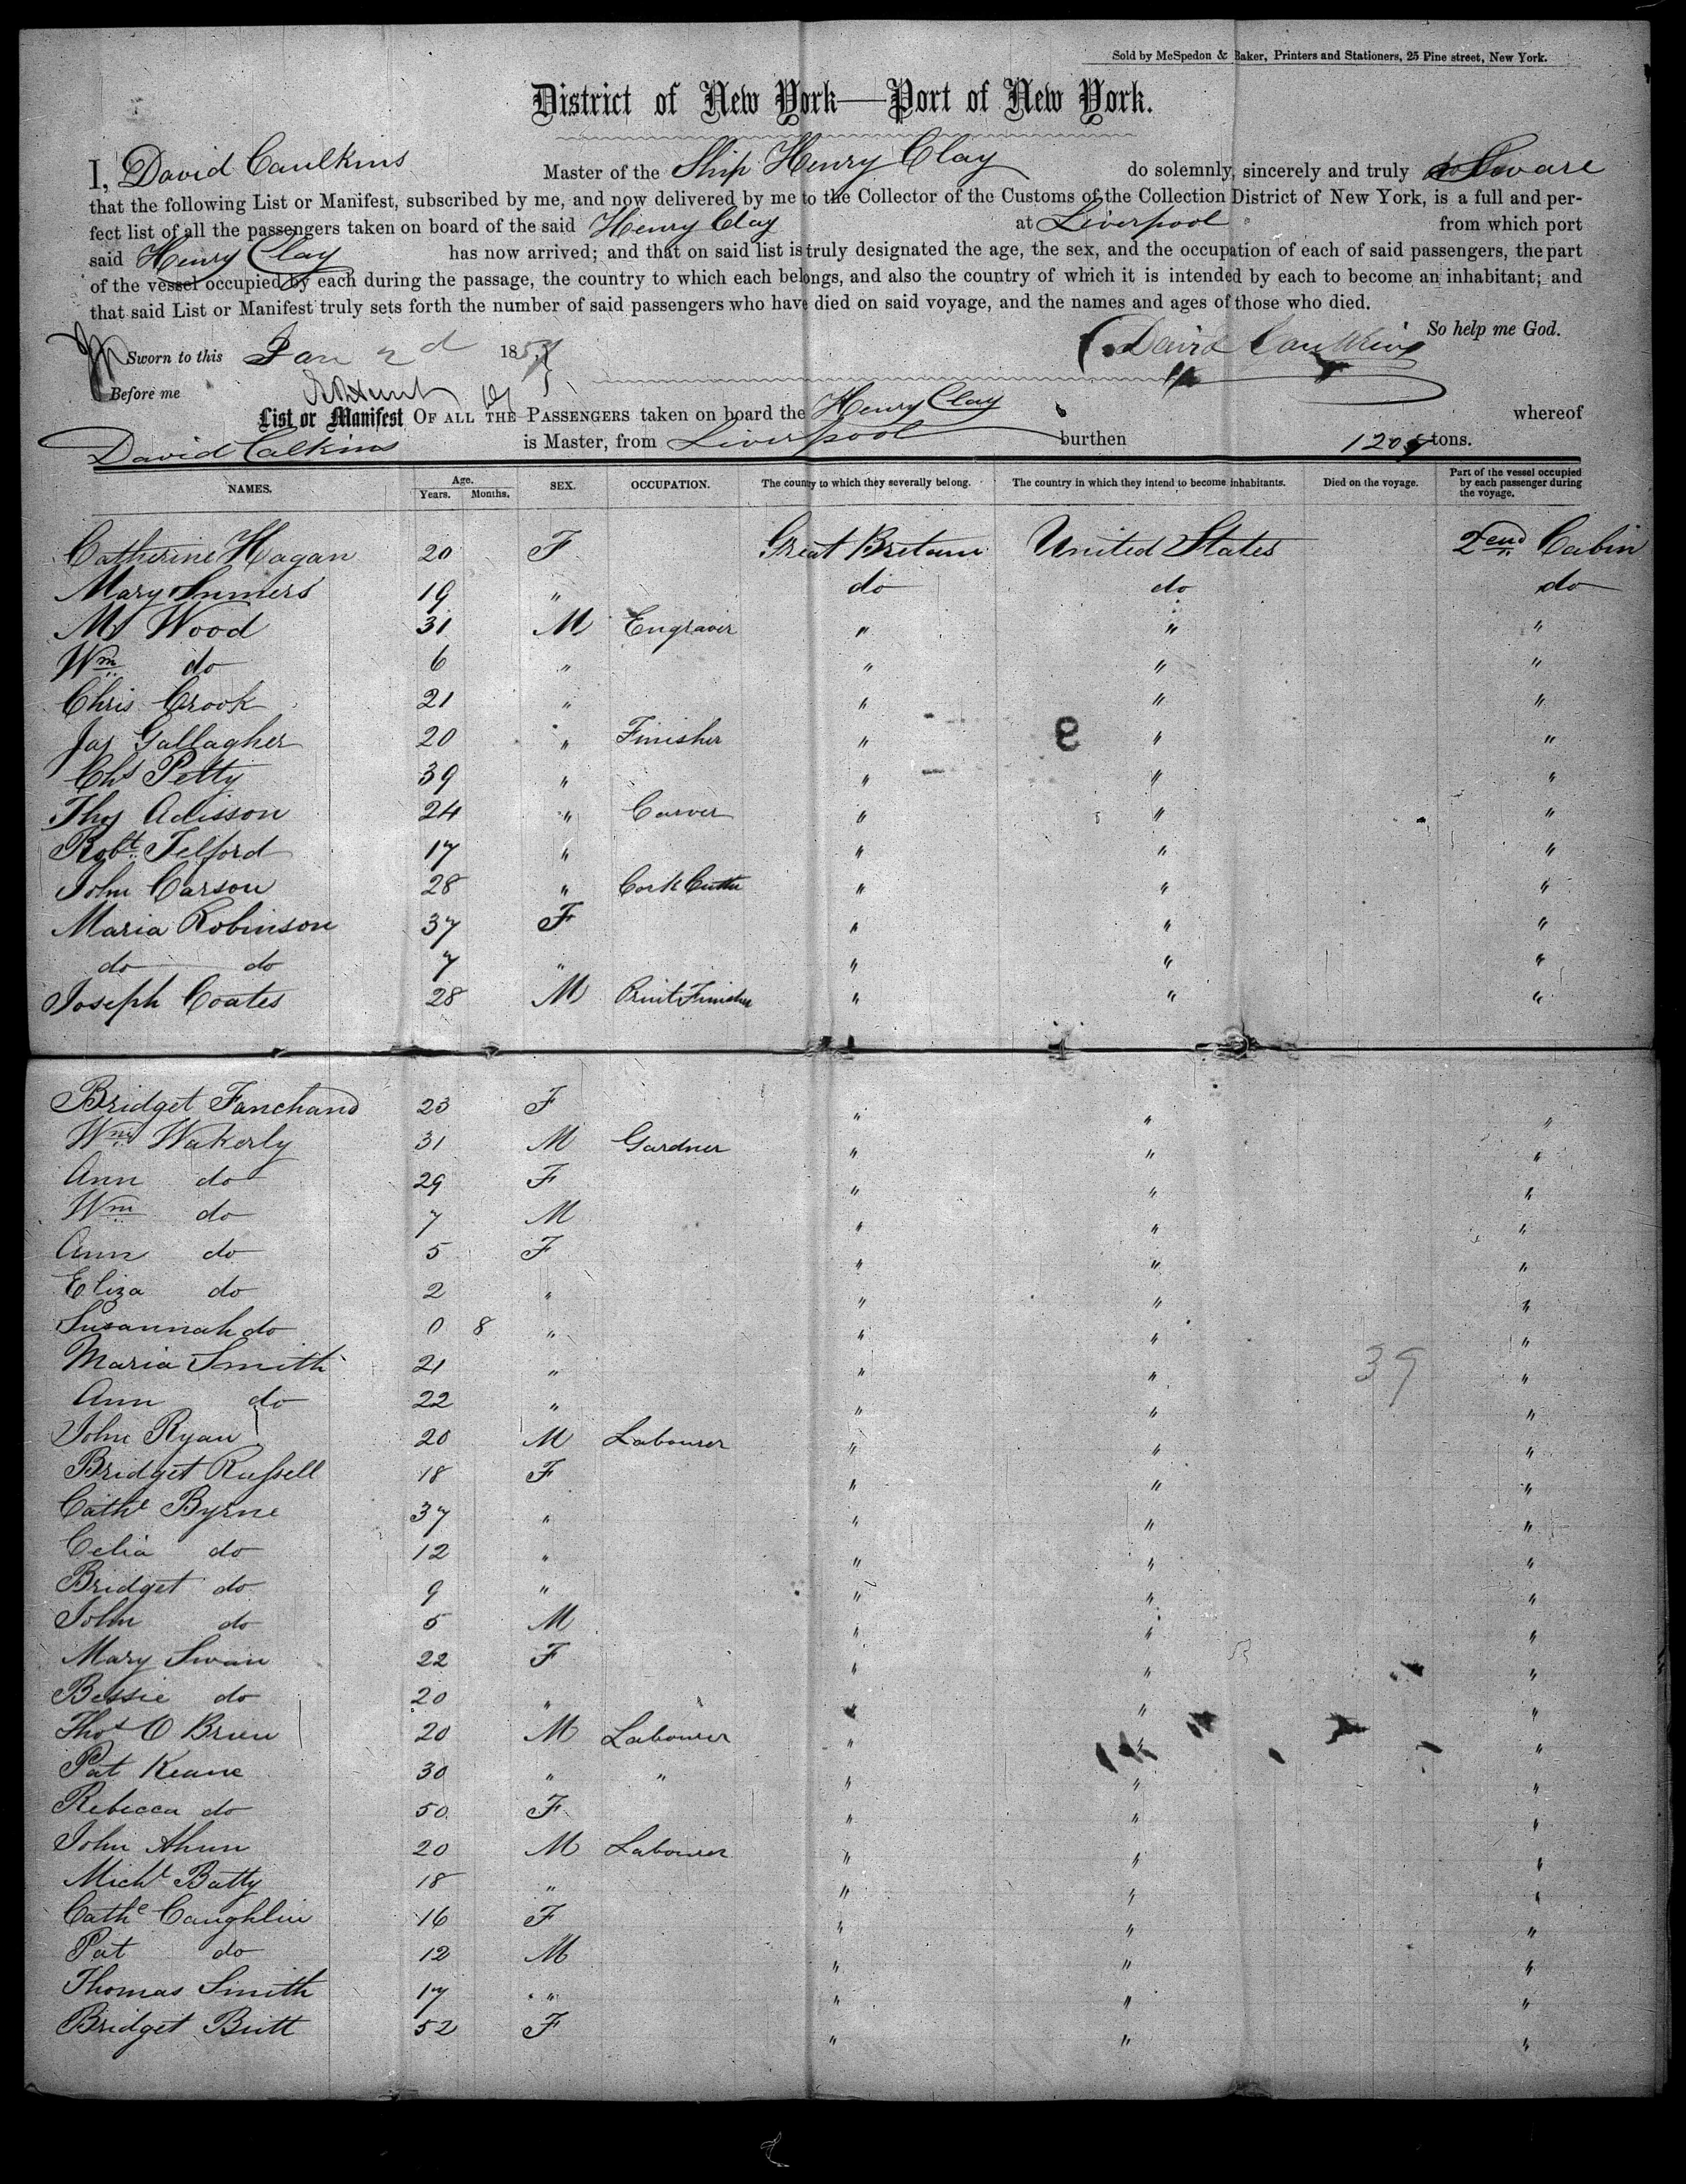 Sold by McSpedon & Baker, Printers and Stationers, 25 Pine street, New York.
District of New York—Port of New York.
I, David Caulkins Master of the Ship Henry Clay do solemnly, sincerely and truly Sware
that the following List or Manifest, subscribed by me, and now delivered by me to the Collector of the Customs of the Collection District of New York, is a full and per-
fect list of all the passengers taken on board of the said Henry Clay at Liverpool from which port
said Henry Clay has now arrived; and that on said list is truly designated the age, the sex, and the occupation of each of said passengers, the part
of the vessel occupied by each during the passage, the country to which each belongs, and also the country of which it is intended by each to become an inhabitant; and
that said List or Manifest truly sets forth the number of said passengers who have died on said voyage, and the names and ages of those who died.
So help me God.
Sworn to this Jan 2d 185 David Caulkins
Before me
List or Manifest OF ALL THE PASSENGERS taken on board the Henry Clay whereof
David Calkins is Master, from Liverpool burthen tons.
NAMES. Age. Years. Months. SEX. OCCUPATION. The country to which they severally belong. The country in which they intend to become inhabitants. Died on the voyage. Part of the vessel occupied by each passenger during the voyage.
Catherine Hagan 20 F Great Bretain United States 2end Cabin
Mary 19 " do do do
Wood 31 M Engraver " " "
Wm do 6 " " " "
Chris Crook 21 " " " "
Jas Gallagher 20 " Finisher " " "
Chs Petty 39 " " " "
Thos Adisson 24 " Carver " " "
Robt Telford 17 " " " "
John Carson 28 " Cork Cutter " " "
Maria Robinson 37 F " " "
do do 7 " " " "
Joseph Coates 28 M Print Finisher " " "
Bridget 23 F " " "
Wm Wakerly 31 M Gardner " " "
Ann do 29 F " " "
Wm do 7 M " " "
Ann do 5 F " " "
Eliza do 2 " " " "
Susannah do 0 8 " " " "
Maria Smith 21 " " " "
39
Ann do 22 " " " "
John Ryan 20 M Labourer " " "
Bridget Russell 18 F " " "
Cathe Byrne 37 " " " "
Celia do 12 " " " "
Bridget do 9 " " " "
John do 5 M " " "
Mary Swan 22 F " " "
Bessie do 20 " " " "
Thos O Brien 20 M Labourer " " "
Pat Keane 30 " " " " "
Rebecca do 50 F " " "
John Ahun 20 M Labourer " " "
Michl Batty 18 " " " "
Cathe Caughlin 16 F " " "
Pat do 12 M " " "
Thomas Smith 17 " " " "
Bridget Butt 52 F " " "